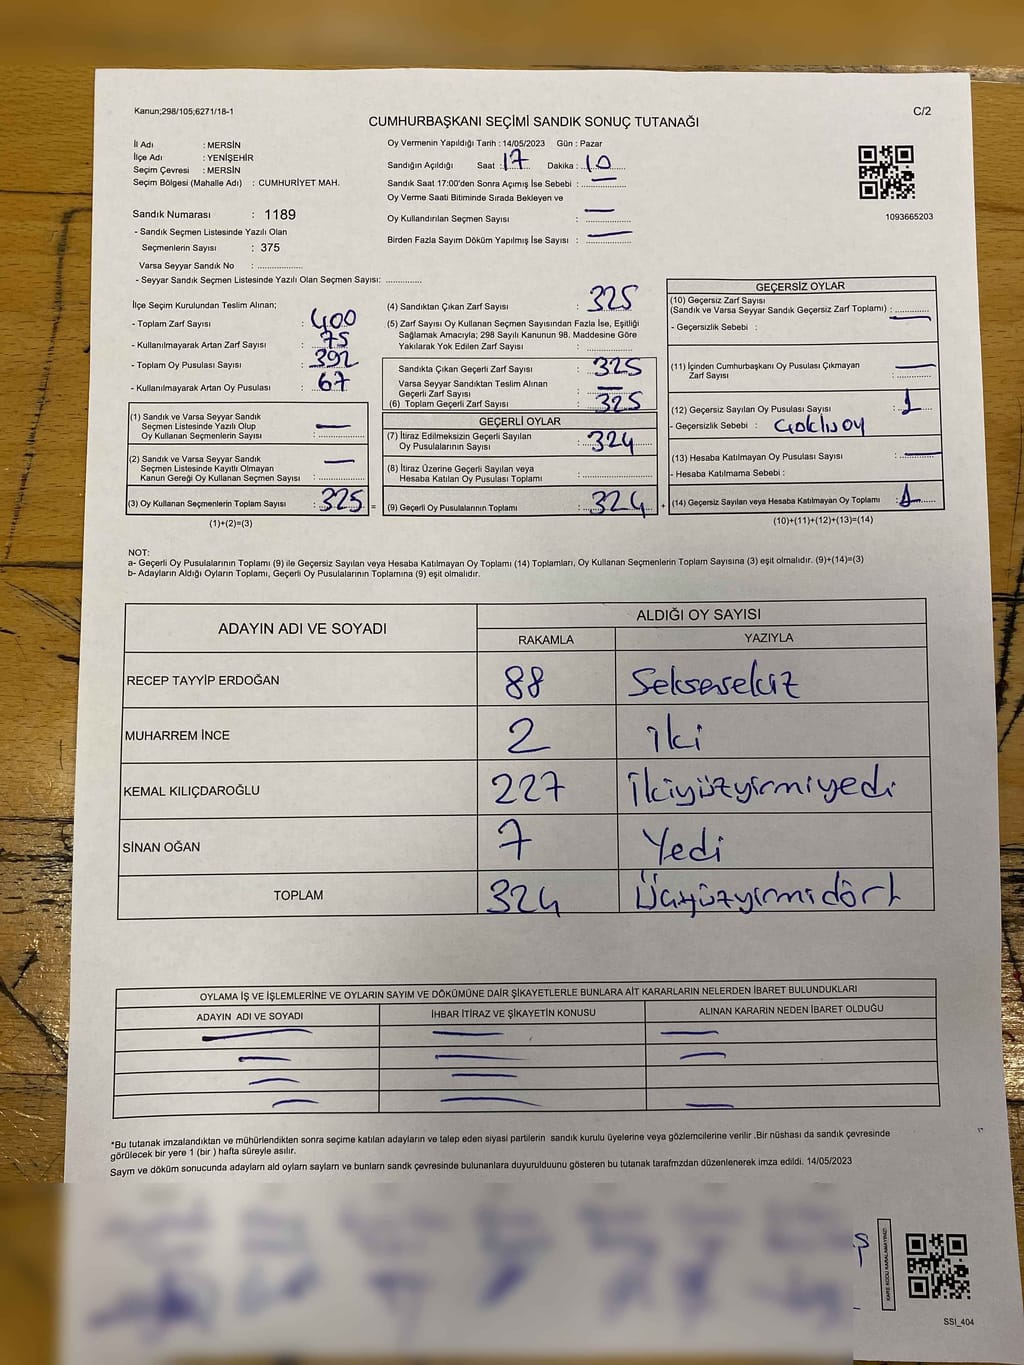 Kanun;298/105;6271/18-1
C/2
CUMHURBAŞKANI SEÇİMİ SANDIK SONUÇ TUTANAĞI
İl Adı : MERSİN
İlçe Adı : YENİŞEHİR
Seçim Çevresi : MERSİN
Seçim Bölgesi (Mahalle Adı) : CUMHURİYET MAH.
Sandık Numarası : 1189
- Sandık Seçmen Listesinde Yazılı Olan
Seçmenlerin Sayısı : 375
Varsa Seyyar Sandık No : ..................
- Seyyar Sandık Seçmen Listesinde Yazılı Olan Seçmen Sayısı: ..............
Oy Vermenin Yapıldığı Tarih : 14/05/2023 Gün : Pazar
Sandığın Açıldığı Saat : 17 Dakika : 10
Sandık Saat 17:00'den Sonra Açımış İse Sebebi : —
Oy Verme Saati Bitiminde Sırada Bekleyen ve
Oy Kullandırılan Seçmen Sayısı : —
Birden Fazla Sayım Döküm Yapılmış İse Sayısı : —
1093665203
İlçe Seçim Kurulundan Teslim Alınan;
- Toplam Zarf Sayısı : 400
- Kullanılmayarak Artan Zarf Sayısı : 75
- Toplam Oy Pusulası Sayısı : 392
- Kullanılmayarak Artan Oy Pusulası : 67
(1) Sandık ve Varsa Seyyar Sandık
Seçmen Listesinde Yazılı Olup
Oy Kullanan Seçmenlerin Sayısı : —
(2) Sandık ve Varsa Seyyar Sandık
Seçmen Listesinde Kayıtlı Olmayan
Kanun Gereği Oy Kullanan Seçmen Sayısı : —
(3) Oy Kullanan Seçmenlerin Toplam Sayısı : 325 =
(1)+(2)=(3)
(4) Sandıktan Çıkan Zarf Sayısı : 325
(5) Zarf Sayısı Oy Kullanan Seçmen Sayısından Fazla İse, Eşitliği
Sağlamak Amacıyla; 298 Sayılı Kanunun 98. Maddesine Göre
Yakılarak Yok Edilen Zarf Sayısı : ..............
Sandıkta Çıkan Geçerli Zarf Sayısı : 325
Varsa Seyyar Sandıktan Teslim Alınan
Geçerli Zarf Sayısı : —
(6) Toplam Geçerli Zarf Sayısı : 325
GEÇERLİ OYLAR
(7) İtiraz Edilmeksizin Geçerli Sayılan
Oy Pusulalarının Sayısı : 324
(8) İtiraz Üzerine Geçerli Sayılan veya
Hesaba Katılan Oy Pusulası Toplamı : ..............
(9) Geçerli Oy Pusulalarının Toplamı : 324 +
GEÇERSİZ OYLAR
(10) Geçersiz Zarf Sayısı
(Sandık ve Varsa Seyyar Sandık Geçersiz Zarf Toplamı) : —
- Geçersizlik Sebebi :
(11) İçinden Cumhurbaşkanı Oy Pusulası Çıkmayan
Zarf Sayısı : —
(12) Geçersiz Sayılan Oy Pusulası Sayısı : 1
- Geçersizlik Sebebi :
(13) Hesaba Katılmayan Oy Pusulası Sayısı : —
- Hesaba Katılmama Sebebi :
(14) Geçersiz Sayılan veya Hesaba Katılmayan Oy Toplamı : 1
(10)+(11)+(12)+(13)=(14)
NOT:
a- Geçerli Oy Pusulalarının Toplamı (9) ile Geçersiz Sayılan veya Hesaba Katılmayan Oy Toplamı (14) Toplamları, Oy Kullanan Seçmenlerin Toplam Sayısına (3) eşit olmalıdır. (9)+(14)=(3)
b- Adayların Aldığı Oyların Toplamı, Geçerli Oy Pusulalarının Toplamına (9) eşit olmalıdır.
ADAYIN ADI VE SOYADI
ALDIĞI OY SAYISI
RAKAMLA YAZIYLA
RECEP TAYYİP ERDOĞAN 88 Seksensekiz
MUHARREM İNCE 2 İki
KEMAL KILIÇDAROĞLU 227 İkiyüzyirmiyedi
SİNAN OĞAN 7 Yedi
TOPLAM 324 Üçyüzyirmidört
OYLAMA İŞ VE İŞLEMLERİNE VE OYLARIN SAYIM VE DÖKÜMÜNE DAİR ŞİKAYETLERLE BUNLARA AİT KARARLARIN NELERDEN İBARET BULUNDUKLARI
ADAYIN ADI VE SOYADI İHBAR İTİRAZ VE ŞİKAYETİN KONUSU ALINAN KARARIN NEDEN İBARET OLDUĞU
*Bu tutanak imzalandıktan ve mühürlendikten sonra seçime katılan adayların ve talep eden siyasi partilerin sandık kurulu üyelerine veya gözlemcilerine verilir .Bir nüshası da sandık çevresinde
görülecek bir yere 1 (bir ) hafta süreyle asılır.
Saym ve döküm sonucunda adaylarn ald oylarn saylarn ve bunlarn sandk çevresinde bulunanlara duyurulduunu gösteren bu tutanak tarafmzdan düzenlenerek imza edildi. 14/05/2023
KARE KODU KARALAMAYINIZ!
SSI_404